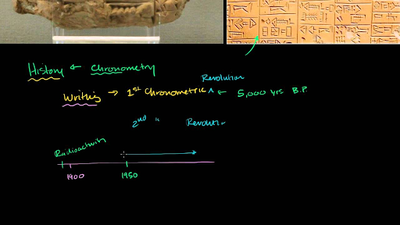 History & Chronometry
Revolution
Writing → 1st Chronometric ^ ← 5,000 yrs B.P
2nd " Revolution
Radioactivity
1900 1950